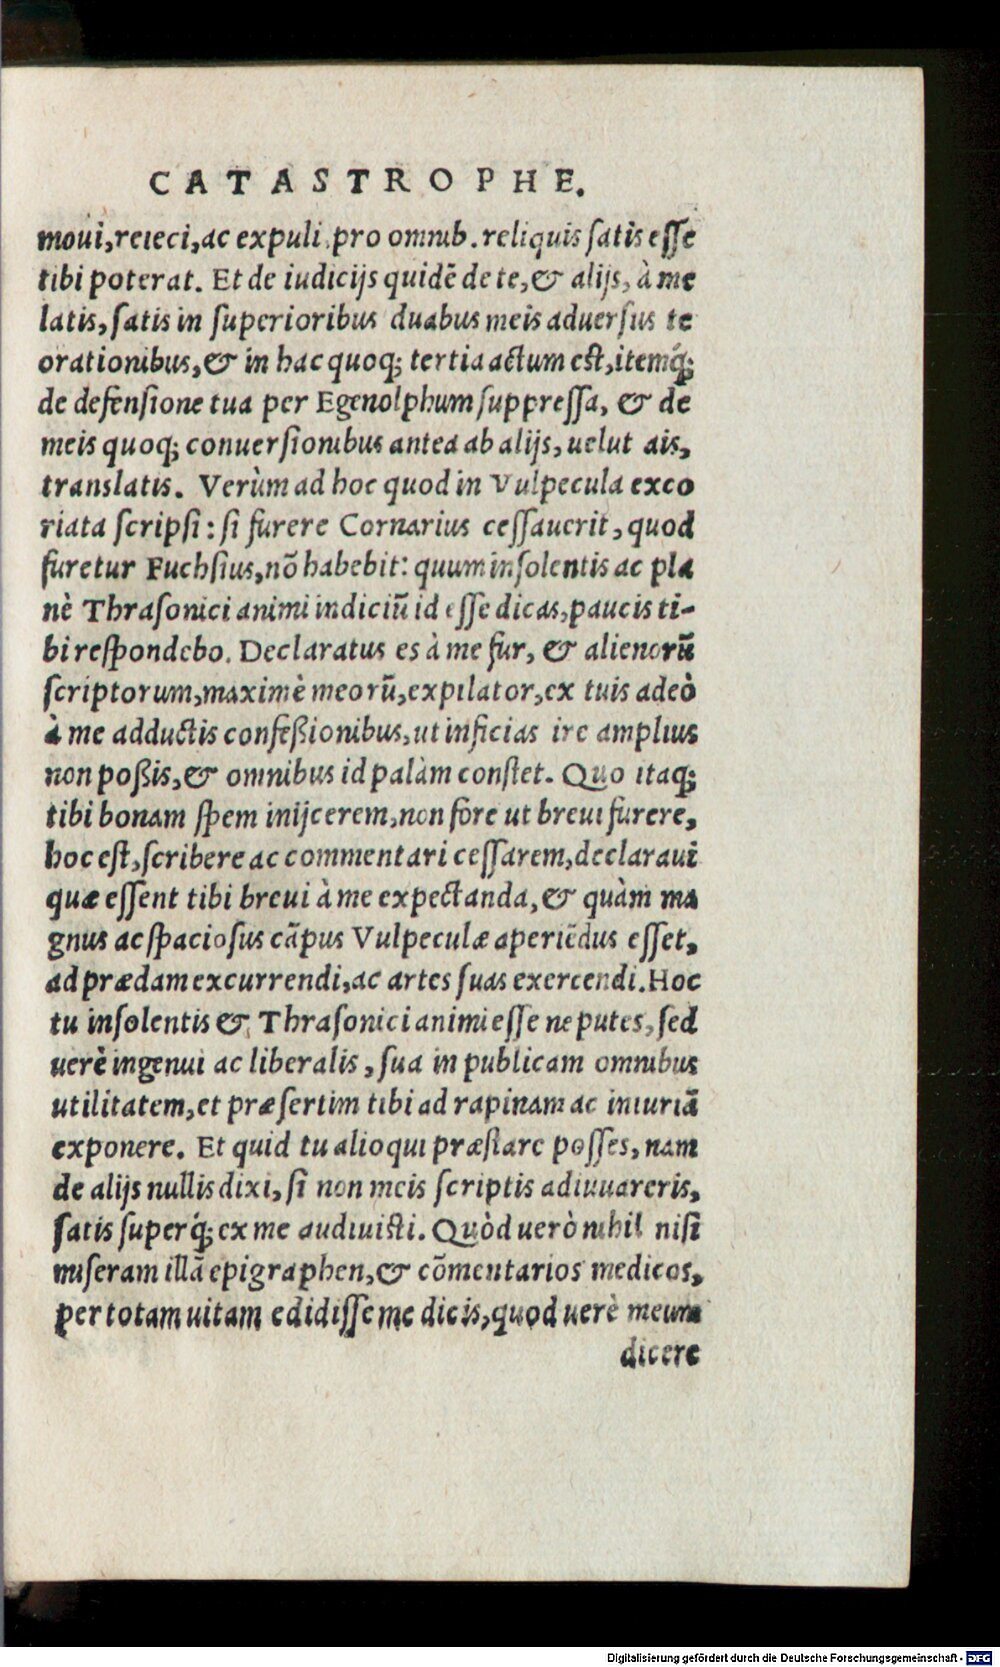 CATASTROPHE.
moui,reieci,ac expuli,pro omnib.reliquis ſatis eſſe
tibi poterat. Et de iudicijs quidē de te,& alijs, à me
latis,ſatis in ſuperioribus duabus meis aduerſus te
orationibus,& in hac quoq; tertia actum eſt,itemq́;
de defenſione tua per Egenolphum ſuppreſſa, & de
meis quoq; conuerſionibus antea ab alijs, uelut ais,
translatis. Verùm ad hoc quod in Vulpecula exco
riata ſcripſi: ſi furere Cornarius ceſſauerit, quod
furetur Fuchſius,nō habebit: quum inſolentis ac pla
nè Thraſonici animi indiciū id eſſe dicas,paucis ti-
bi reſpondebo. Declaratus es à me fur, & alienorū
ſcriptorum,maximè meorū,expilator,ex tuis adeò
à me adductis confeßionibus,ut inficias ire amplius
non poßis,& omnibus id palàm conſtet. Quo itaq;
tibi bonam ſpem inijcerem,non fore ut breui furere,
hoc eſt,ſcribere ac commentari ceſſarem,declaraui
quæ eſſent tibi breui à me expectanda,& quàm ma
gnus ac ſpacioſus cāpus Vulpeculæ aperiēdus eſſet,
ad prædam excurrendi,ac artes ſuas exercendi.Hoc
tu inſolentis & Thraſonici animi eſſe ne putes,ſed
uerè ingenui ac liberalis ,ſua in publicam omnibus
utilitatem,et præſertim tibi ad rapinam ac iniuriā
exponere. Et quid tu alioqui præſtare poſſes, nam
de alijs nullis dixi, ſi non meis ſcriptis adiuuareris,
ſatis ſuperq́; ex me audiuiſti. Quòd uerò nihil niſi
miſeram illā epigraphen,& cōmentarios medicos,
per totam uitam edidiſſe me dicis,quod uerè meum
dicere
Digitalisierung gefördert durch die Deutsche Forschungsgemeinschaft - DFG